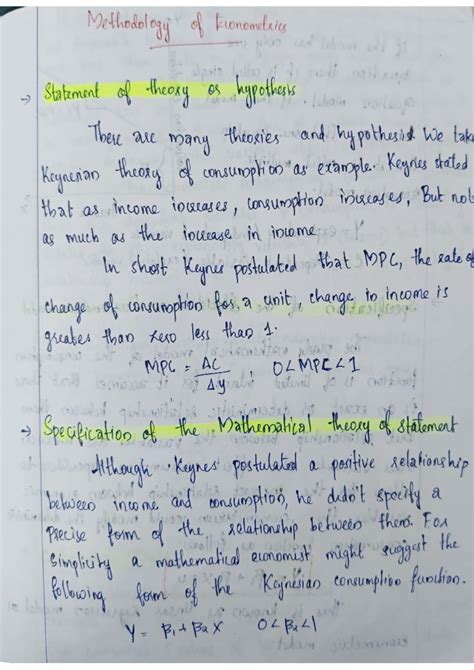 Methodology of Econometrics
→ Statement of theory or hypothesis
There are many theories and hypothesis. We take
Keynerian theory of consumption as example. Keynes stated
that as income increases, consumption increases, But not
as much as the increase in income.
In short Keynes postulated that MPC, the rate of
change of consumption for a unit change in income is
greater than zero less than 1.
MPC = ΔC/Δy , 0<MPC<1
→ Specification of the Mathematical theory of statement
Although Keynes postulated a positive relationship
between income and consumption, he didn't specify a
precise form of the relationship between them. For
simplicity a mathematical economist might suggest the
following form of the Keynesian consumption function.
Y = β1 + β2 X 0<β2<1